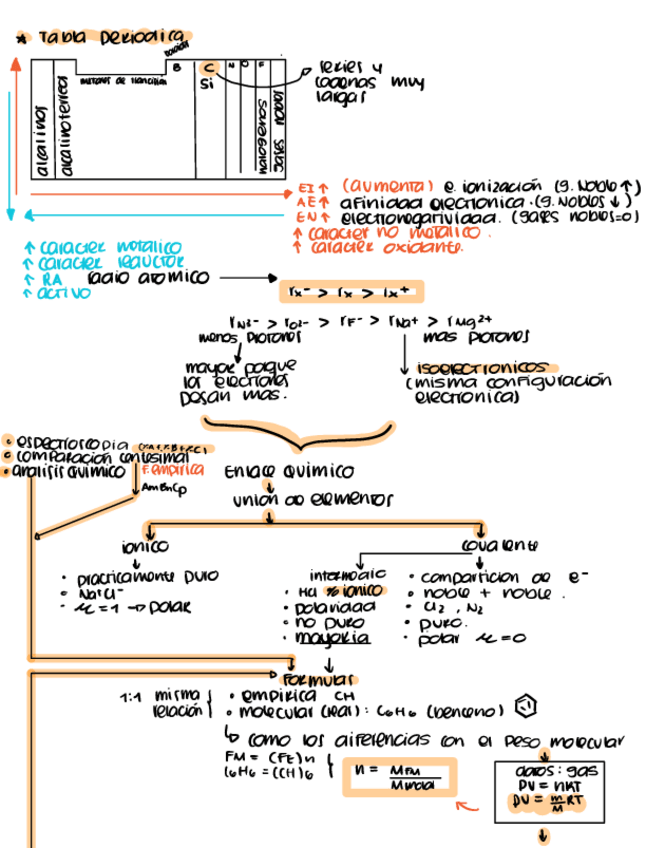 * Tabla Periodica
B C N O F
Si
metales de transición
alcalinos
alcalinoterreos
halogenos
gases nobles
series y
cadenas muy
largas
EI ↑ (aumenta) e. ionización (g. Noble ↑)
AE ↑ afinidad electronica. (g. Nobles ↓)
EN ↑ electronegatividad. (gases nobles=0)
↑ caracter no metalico.
↑ caracter oxidante.
↑ caracter metalico
↑ caracter reductor
↑ RA radio atomico
↑ activo
rx⁻ > rx > rx⁺
rN³⁻ > rO²⁻ > rF⁻ > rNa⁺ > rMg²⁺
menos protones
mas protones
mayor porque
los electrones
pesan mas.
isoelectronicos
(misma configuración
electronica)
• espectroscopia
• comparación centesimal
• analisis químico
F. empirica
AmBnCp
Enlace químico
union de elementos
ionico
• practicamente puro
• Na⁺Cl⁻
• μ = 1 → polar
intermedio
• HCl % ionico
• polaridad
• no puro
• mayoria
covalente
• comparticion de e⁻
• noble + noble.
• Cl₂, N₂
• puro.
• polar μ = 0
Formulas
1:1 misma relación
• empirica CH
• molecular (real): C₆H₆ (benceno)
↳ como los diferencias con el peso molecular
FM = (FE)n
C₆H₆ = (CH)₆
n = MFM /
datos: gas
PV = nRT
PV = m/M RT